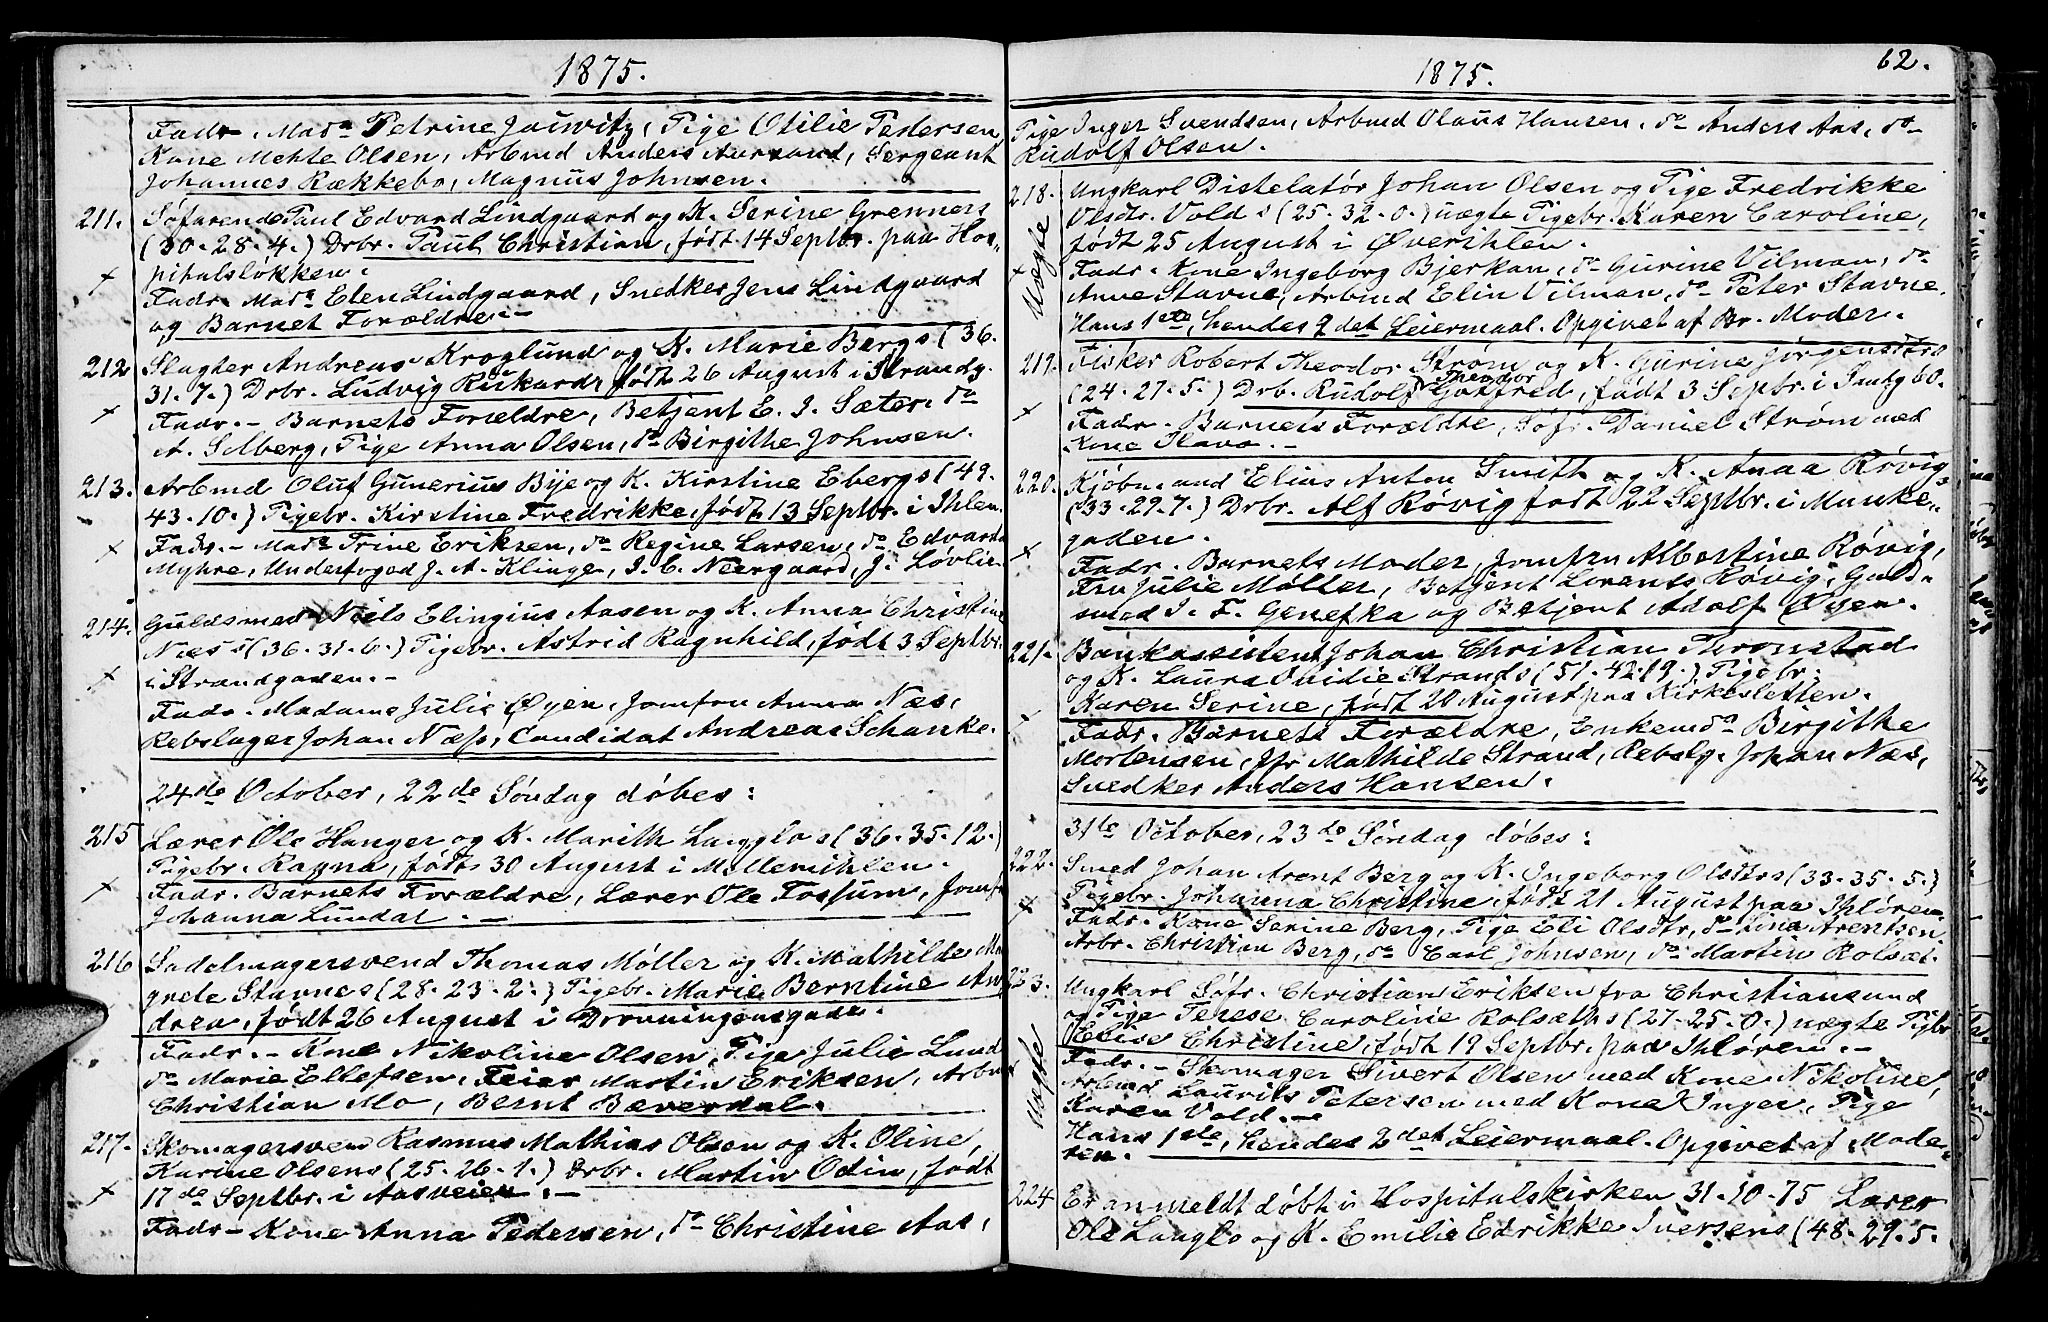 1875.
Fadr. Mada Petrine Jauwitz, Pige Otilie Pedersen
Kone Mehte Olsen, Arbmd Anders Aursand, Sergeant
Johannes Rækkebo, Magnus Johnsen.
211. Søfarende Paul Edvard Lindgaard og K. Serine Grenners
(30-28-4.) Drbr. Paul Christian, født 14 Septbr. paa Hos-
pitalsløkken.
Fadr. Mada Elen Lindgaard, Snedker Jens Lindgaard
og Barnet Forældre. -
212 Slagter Andreas Kroglund og K. Marie Bergs (36.
31-7.) Drbr. Ludvig Rickard, født 26 August i Strandg.
Fadr. - Barnets Forældre, Betjent E. I. Sæter, do
A. Solberg, Pige Anna Olsen, do Birgithe Johnsen.
213. Arbmd Oluf Gunerius Bye og K. Kirstine Ebergs (49.
43-10.) Pigebr. Kirstine Fredrikke, født 13 Septbr. i Ihlen.
Fadr. - Mada Trine Eriksen, do Regine Larsen, do Edvarda
Myhre, Underfoged J. A. Klinge, I. C. Neergaard, J. Løvlie.
214. Guldsmed Niels Elingius Aasen og K. Anna Christine
Næs's (36-31-6.) Pigebr. Astrid Ragnhild, født 3 Septbr.
i Strandgaden. -
Fadr. Madame Julie Øyen, Jomfru Anna Næs,
Rebslager Johan Næss, Candidat Andreas Schanke.
24de October, 22de Søndag døbes:
215 Lærer Ole Hanger og K. Marith Langlos (36-35-12.)
Pigebr. Ragna, født 30 August i Møllemihlen.
Fadr. Barnets Forældre, Lærer Ole Fossum, Jomfr
Johanna Lundal. -
216 Sadelmagersvend Thomas Møller og K. Mathilde Mar
grete Stavnes (28-23-2.) Pigebr. Marie Berntine An
drea, født 26 August i Dronningensgade.
Fadr. - Kone Nikoline Olsen, Pige Julie Lund
do Marie Ellefsen, Feier Martin Eriksen, Arbmd
Christian Mo, Bernt Bæverdal.
217. Skomagersvend Rasmus Mathias Olsen og K. Oline,
Karine Olsens (25-26-1.) Drbr. Martin Odin, født
17de Septbr. i Aasveien. -
Fadr - Kone Anna Pedersen, do Christine Aas,
1875.
62.
Pige Inger Svendsen, Arbmd Olaus Hansen, do Anders Aas, do
Rudolf Olsen.
218. Ungkarl Distelatør Johan Olsen og Pige Fredrikke
Olsdtr. Volds (25-32-0.) uægte Pigebr. Karen Caroline,
født 25 August i Øverihlen.
Uægte
Fadr. Kone Ingeborg Bjerkan, do Gurine Vilman, do
Anne Stavne, Arbmd Elin Vilman, do Peter Stavne.
Hans 1ste, hendes 2det Leiermaal. Opgivet af Br. Moder.
219. Fisker Robert Theodor Strøm og K. Gurine Jørgensdtrs
(24-27-5.) Drb. Rudolf Theodor Gotfred, født 3 Septbr. i Sandg 60.
Fadr. - Barnets Forældre, Søfr. Daniel Strøm med
Kone Olava. -
220. Kjøbmand Elias Anton Smith og K. Anna Røvig,
(33-29-7.) Drbr. Alf Røvig født 22 Septbr. i Munke-
gaden.
Fadr. Barnets Moder, Jomfru Albertine Røvig,
Fru Julie Møller, Betjent Lorents Røvig, Guld-
smed I. F. Genefka og Betjent Adolf Øyen.
221. Bankassistent Johan Christian Thronstad
og K. Laura Ovidie Strands (51-42-19.) Pigebr.
Karen Serine, født 20 August paa Kirkesletten.
Fadr. Barnets Forældre, Enkemda Birgithe
Mortensen, Jfr Mathilde Strand, Rebslg. Johan Næs,
Snedker Anders Hansen.
31te October, 23de Søndag døbes:
222. Smed Johan Arent Berg og K. Ingeborg Olsdtrs (33-35-5.)
Pigebr. Johanna Christine, født 21 August paa Ihløren.
Fadr. Kone Serine Berg, Pige Eli Olsdtr, do Lina Arentsen
Arbr. Christian Berg, do Carl Johnsen, do Martin Rolsæt.
223. Ungkarl Søfr. Christian Eriksen fra Christiansund
og Pige Terese Caroline Rolsæths (27-25-0.) uægte Pigbr
Elise Christine, født 19 Septbr. paa Ihløren. -
Uægte
Fadr. - Skomager Sivert Olsen med Kone Nikoline,
Arbmd Laurits Petersen med Kone Inger, Pige
Karen Vold. -
Hans 1ste, hendes 2det Leiermaal. Opgivet af Mode-
ren.
224 Er anmeldt døbt i Hospitalskirken 31-10-75 Lærer
Ole Langlo og K. Emilie Edrikke Iversens (48-29-5.